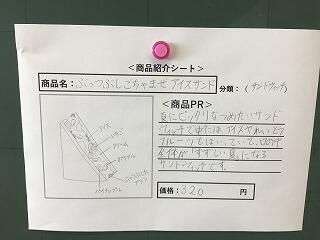 ＜商品紹介シート＞
商品名：ぶっつぶしごちゃまぜアイスサンド
分類：（サンドウィッチ）
アイス
いちご
クリーム
＜商品PR＞
夏にピッタリなつめたいサンド
ウィッチで中には、アイスやれいとう
フルーツもはいっていて、口の中
全体が「すずしい夏」になる
サンドウィッチです。
価格：320 円